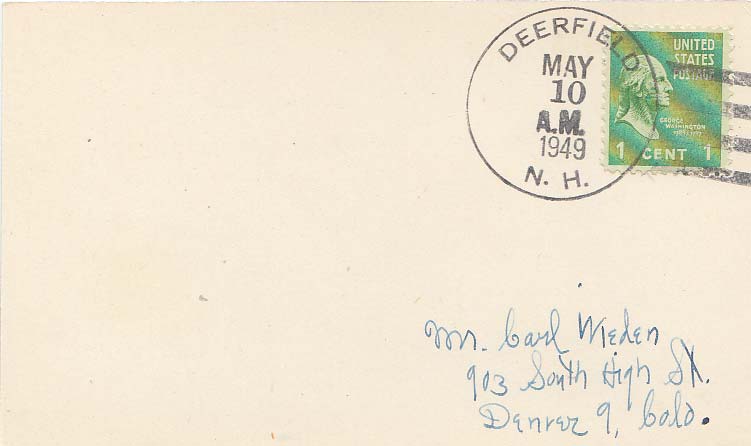 DEERFIELD
MAY
10
A.M.
1949
N. H.
UNITED
STATES
POSTAGE
GEORGE
WASHINGTON
1 CENT 1
Mr. Carl Wieden
903 South High St.
Denver 9, Colo.